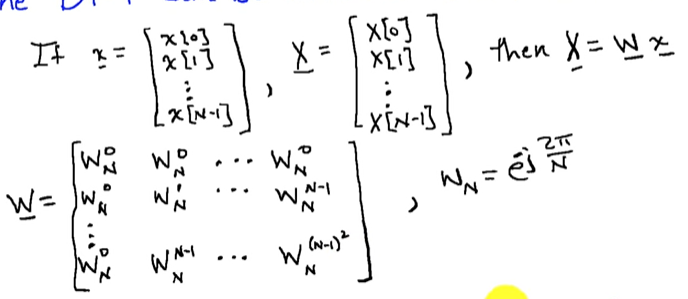 the DFT
If x = [x[0] x[1] ⋮ x[N-1]], X = [X[0] X[1] ⋮ X[N-1]], then X = W x
W = [W_N^0 W_N^0 ⋯ W_N^0
W_N^0 W_N^1 ⋯ W_N^{N-1}
⋮
W_N^0 W_N^{N-1} ⋯ W_N^{(N-1)^2}], W_N = e^{-j 2π/N}